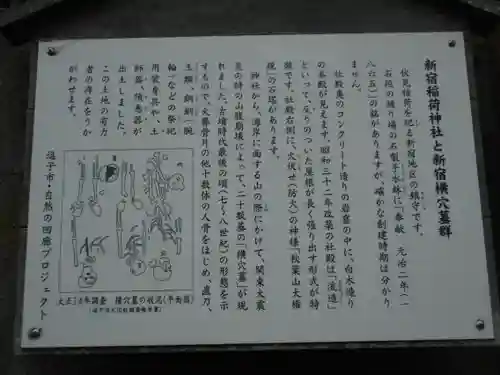 新宿稲荷神社と新宿横穴墓群
伏見稲荷を祀る新宿地区の鎮守です。
石段の踊り場の石製手水鉢に「奉献 元治二年(一
八六五)」の銘がありますが、確かな創建時期は分かり
ません。
社殿奥のコンクリート造りの岩窟の中に、白木造り
の本殿が見えます。昭和三十二年改築の社殿は「流造」
といって、反りのついた屋根が長く張り出す形式が特
徴です。社殿右側に、火伏せ(防火)の神様「秋葉山大権
現」の石塔があります。
神社から、海岸に面する山の際にかけて、関東大震
災の時の山腹崩壊によって、二十数基の「横穴墓」が現
れました。古墳時代最後の頃(七~八世紀)の形態を示
すもので、火葬骨片の他十数体の人骨をはじめ、直刀、
玉類、銅釧(腕
輪)などの祭祀
用装身具や、土
師器、須恵器が
出土しました。
この土地の有力
者の存在をうか
がわせます。
大正13年調査 横穴墓の状況(平面図)
逗子市・自然の回廊プロジェクト